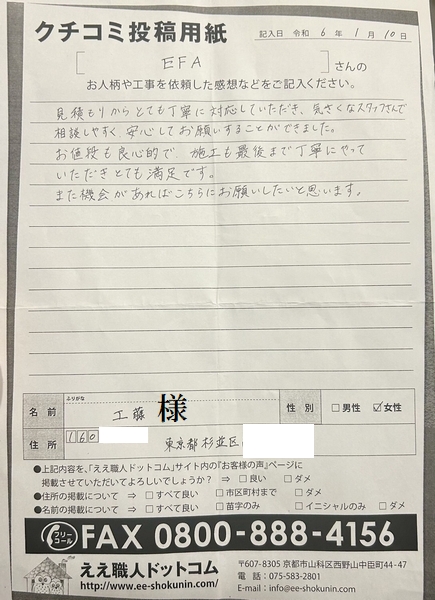 クチコミ投稿用紙
記入日 令和 6年 1月 10日
[ EFA ]さんの
お人柄や工事を依頼した感想などをご記入ください。
見積もりからとても丁寧に対応していただき、気さくなスタッフさんで
相談しやすく、安心してお願いすることができました。
お値段も良心的で、施工も最後まで丁寧にやって
いただきとても満足です。
また機会があればこちらにお願いしたいと思います。
ふりがな
名前 工藤 様 性別 □男性 ☑女性
住所 160 東京都杉並区
●上記内容を、「ええ職人ドットコム」サイト内の『お客様の声』ページに
掲載させていただいてよろしいでしょうか? ⇒ □良い □ダメ
●住所の掲載について ⇒ □すべて良い □市区町村まで □ダメ
●名前の掲載について ⇒ □すべて良い □苗字のみ □イニシャルのみ □ダメ
フリーコール FAX 0800-888-4156
ええ職人ドットコム
http://www.ee-shokunin.com/
〒607-8305 京都市山科区西野山中臣町44-47
電話:075-583-2801
E-mail:info@ee-shokunin.com